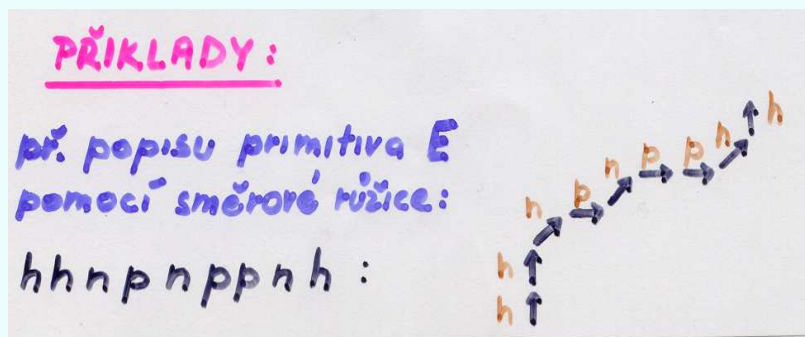 PŘIKLADY:
př. popisu primitiva E
pomocí směrové růžice:
hhnpnppnh:
h
h
n
p
n
p
p
n
h